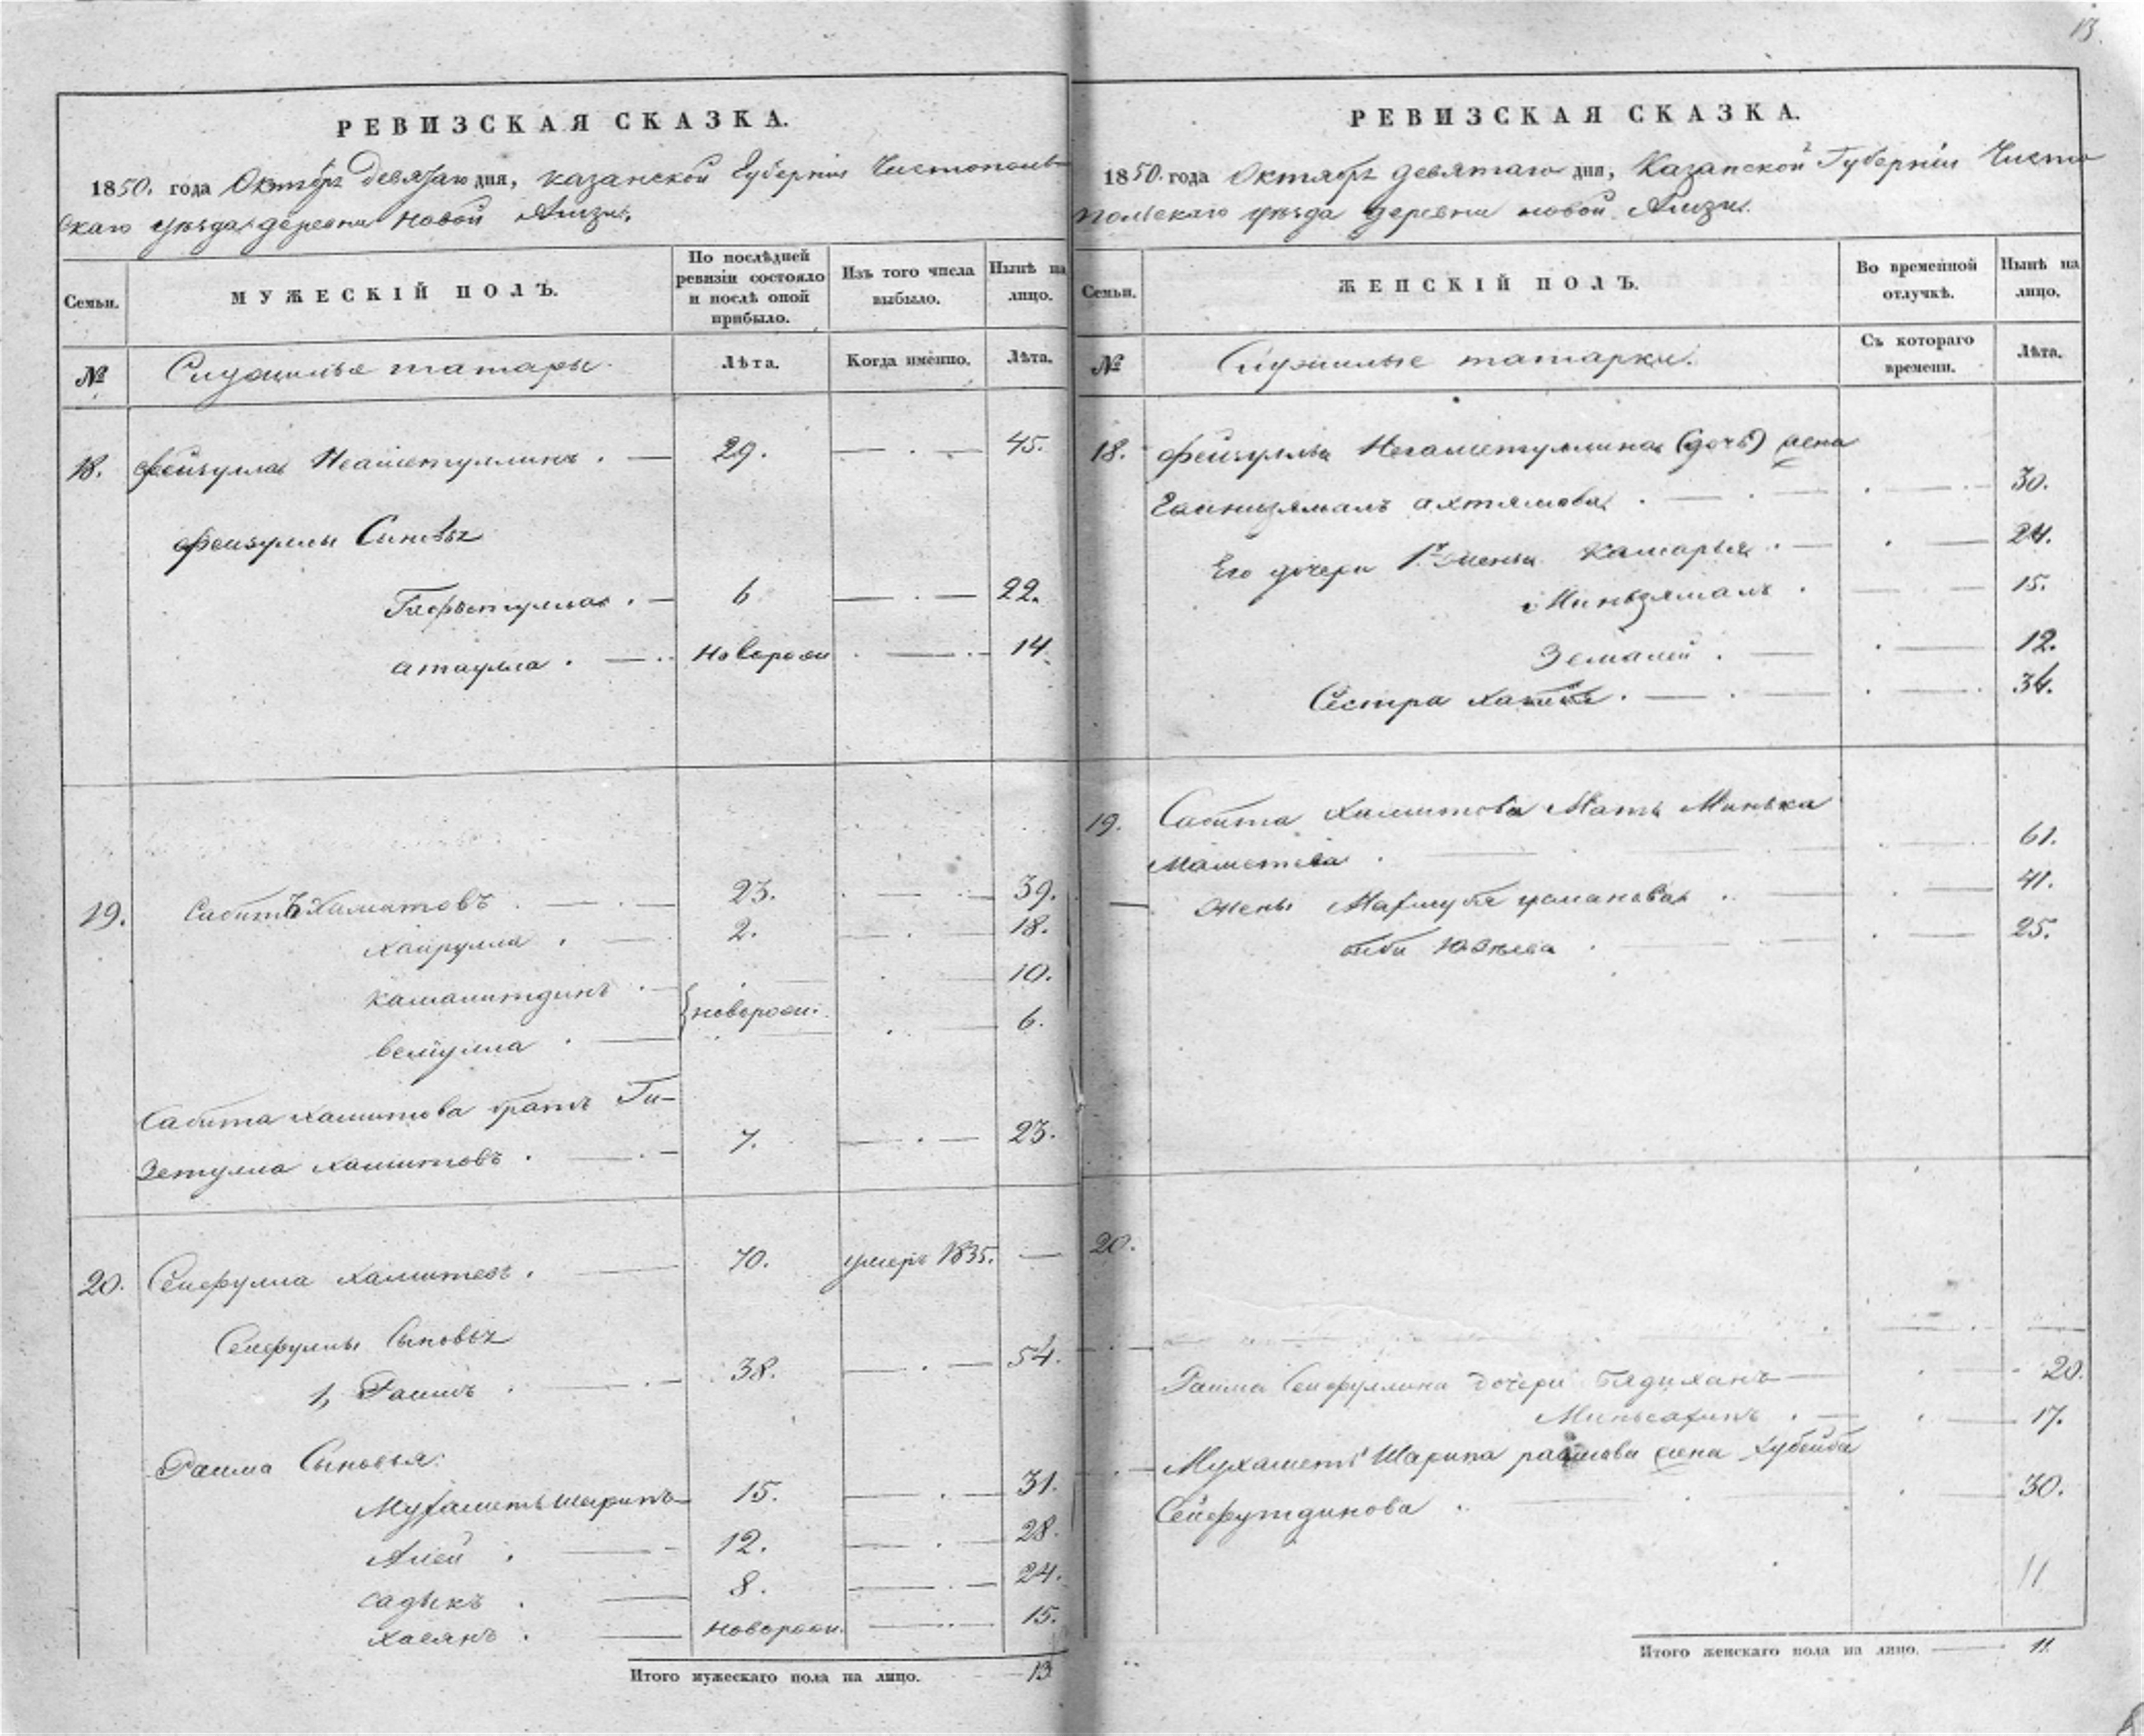 13.
РЕВИЗСКАЯ СКАЗКА.
1850. года Октябрь девятаго дня, казанской Губерніи Чистополь-
скаго уѣзда деревни новой Амзи.
Семьи.
МУЖЕСКІЙ ПОЛЪ.
По послѣдней ревизіи состояло и послѣ оной прибыло.
Изъ того числа выбыло.
Нынѣ на лицо.
№
Служилыя татары.
Лѣта.
Когда имѣнно.
Лѣта.
18. Фейзулла Неаметуллинъ. 29. 45.
Фейзуллы Сыновья
6. 22.
атаулла. Новорож 14.
19. Сабитъ Хамитовъ 23. 39.
хайрулла. 2. 18.
камалитдинъ. 10.
{новорож:
велиулла. 6.
Сабита хамитова братъ Ги-
зетулла хамитовъ. 7. 23.
20. Сейфулла хамитовъ. 70. умеръ 1835. —
Сейфуллы Сыновья
1, Раимъ. 38. 54.
Раима Сыновья:
Мухаметь шарипъ 15. 31.
Алей. 12. 28.
садыкъ. 8. 24.
хасянъ. новорож. 15.
Итого мужескаго пола на лицо. 13
РЕВИЗСКАЯ СКАЗКА.
1850. года Октябрь девятаго дня, Казанской Губерніи Чисто
польскаго уѣзда деревни новой Амзи.
Семьи.
ЖЕНСКІЙ ПОЛЪ.
Во временной отлучкѣ.
Нынѣ на лицо.
№
Служилые татарки.
Съ котораго времени.
Лѣта.
18. Фейзуллы Негаметуллина (дочь) жена
Гайнизямалъ ахтямова. 30.
Его дочери 1й жены Камарья. 24.
Миньзямалъ. 15.
Земалей. 12.
Сестра 34.
19. Сабита Хамитова Мать Минька
Маметева. 61.
Жены усманова. 41.
биби 25.
20.
Раима Сейфуллина дочери Бядиханъ 20.
17.
Мухаметь Шарипа раимова жена Хубейба
Сейфутдинова. 30.
11
Итого женскаго пола на лицо. 11.